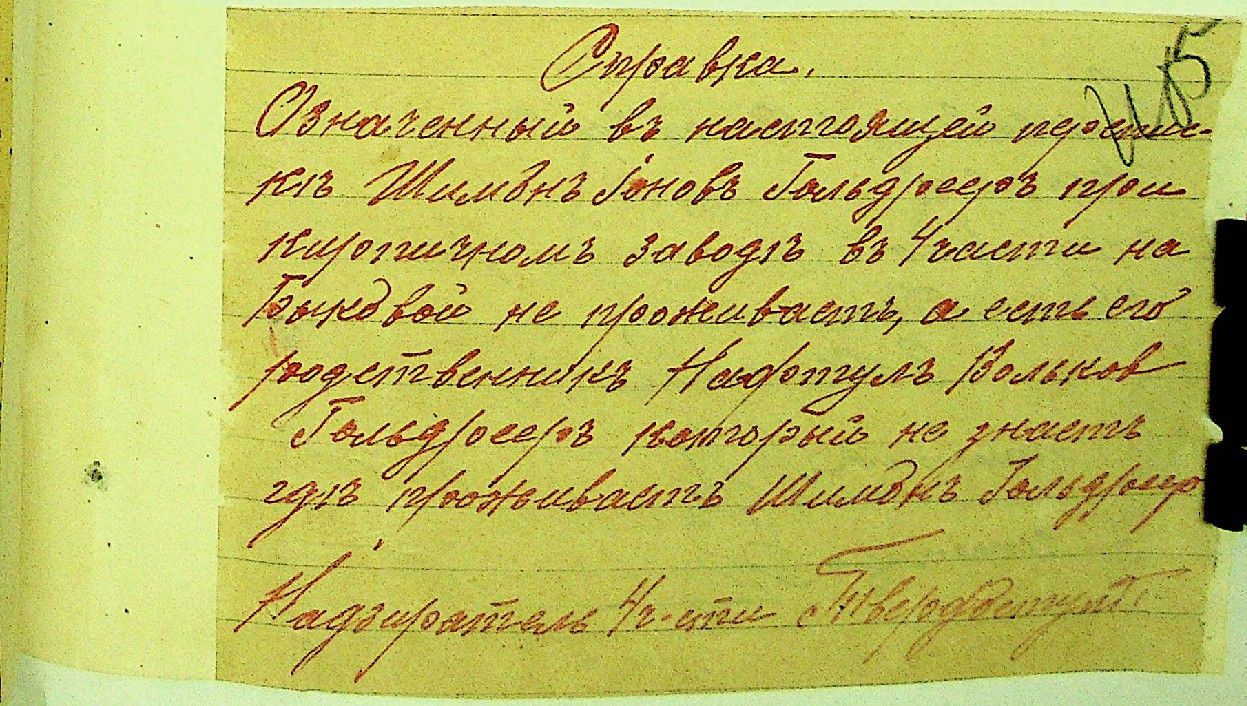 Справка.
Означенный въ настоящей переписи-
кѣ Шимонъ Іоновъ Гольдреер при
кирпичномъ заводѣ въ 4 части на
Быковой не проживаетъ, а есть его
родственникъ Нафтулъ Вольков
Гольдрееръ который не знаетъ
гдѣ проживаетъ Шимонъ Гольдреер
Надзиратель 4 ч-сти